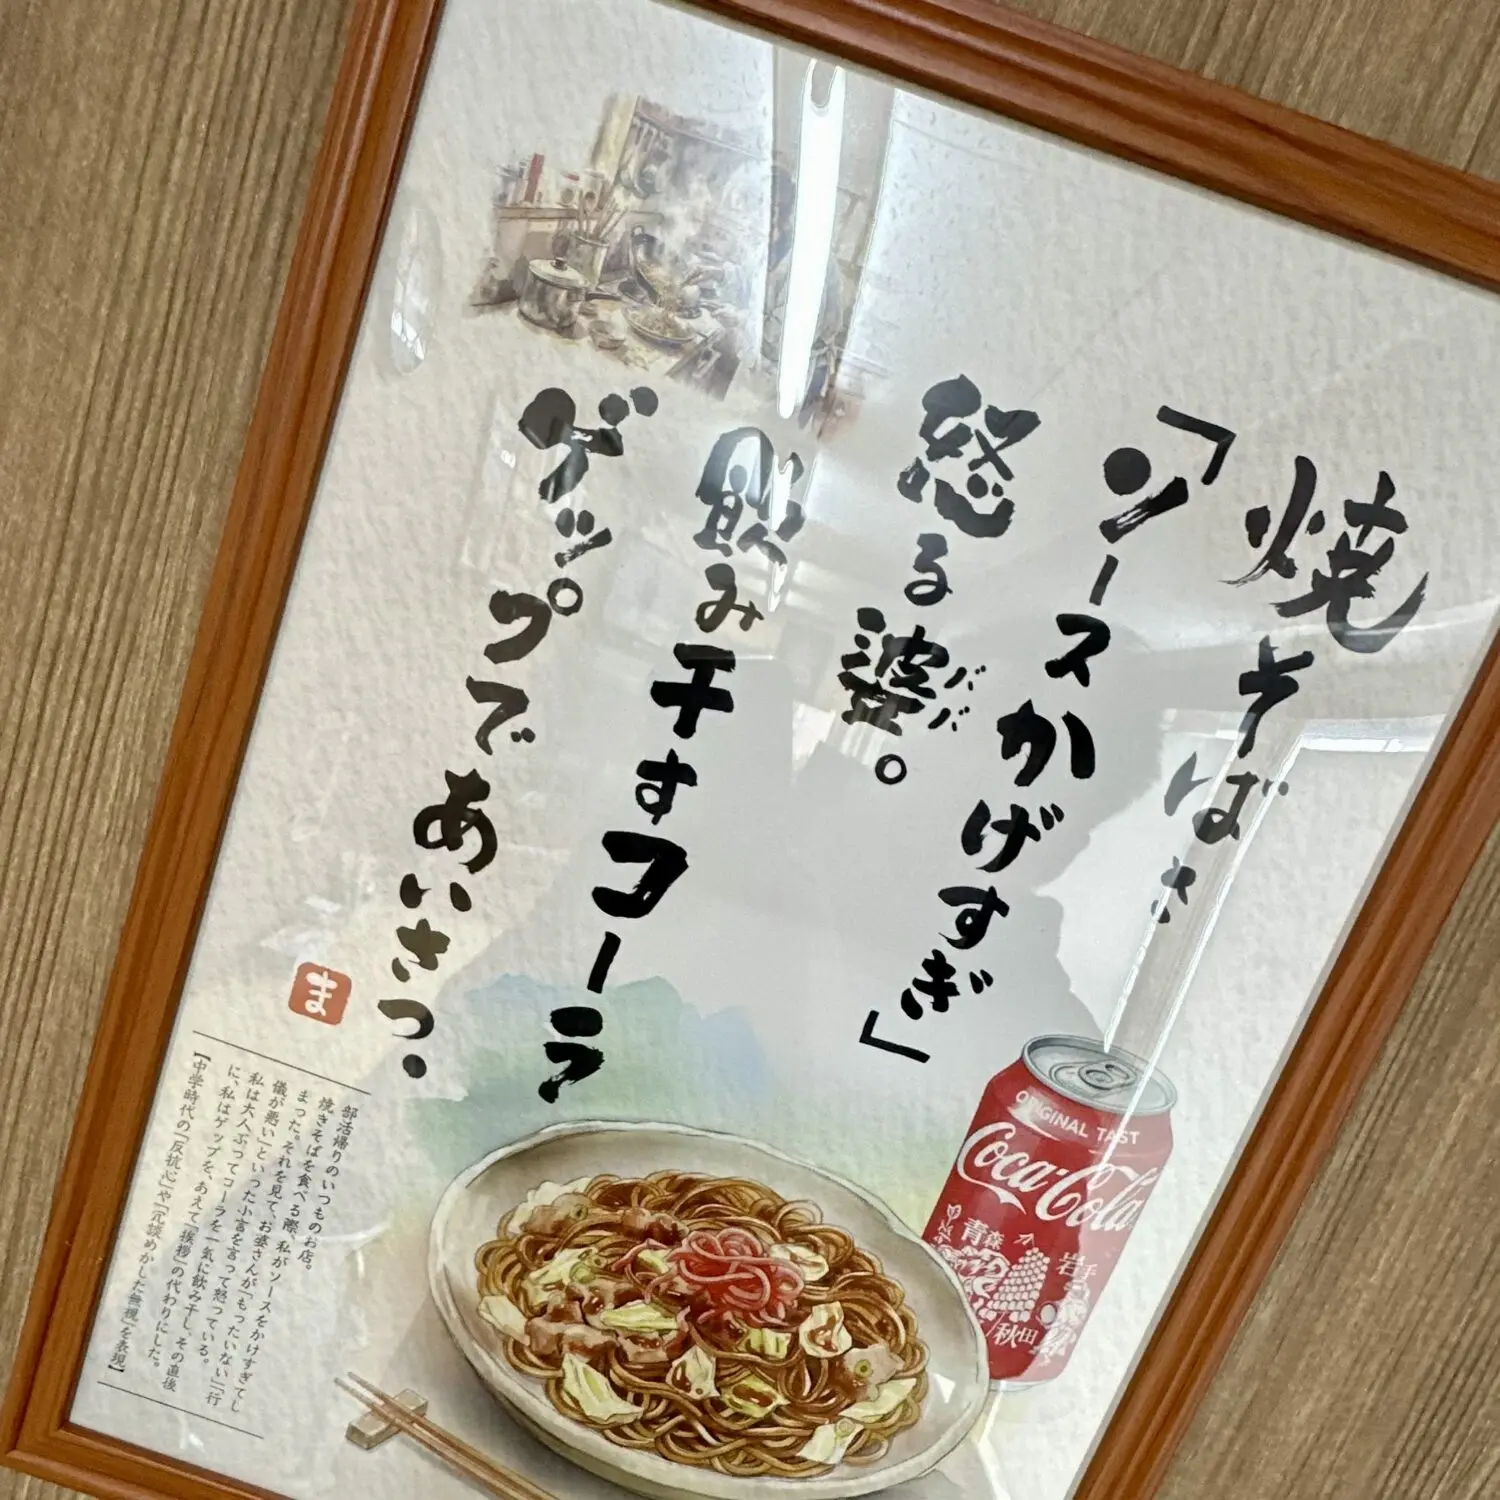 焼そばさ
「ソースかげすぎ」
怒る婆。
ババ
飲み干すコーラ
ゲップであいさつ.
ま
部活帰りのいつものお店。
焼きそばを食べる際、私がソースをかけすぎてし
まった。それを見て、お婆さんが「もったいない」「行
儀が悪い」といった小言を言って怒っている。
私は大人ぶってコーラを一気に飲み干し、その直後
に、私はゲップを、あえて「挨拶」の代わりにした。
【中学時代の「反抗心」や「冗談めかした無視」を表現】
ORIGINAL TAST
Coca-Cola
青森
岩手
秋田